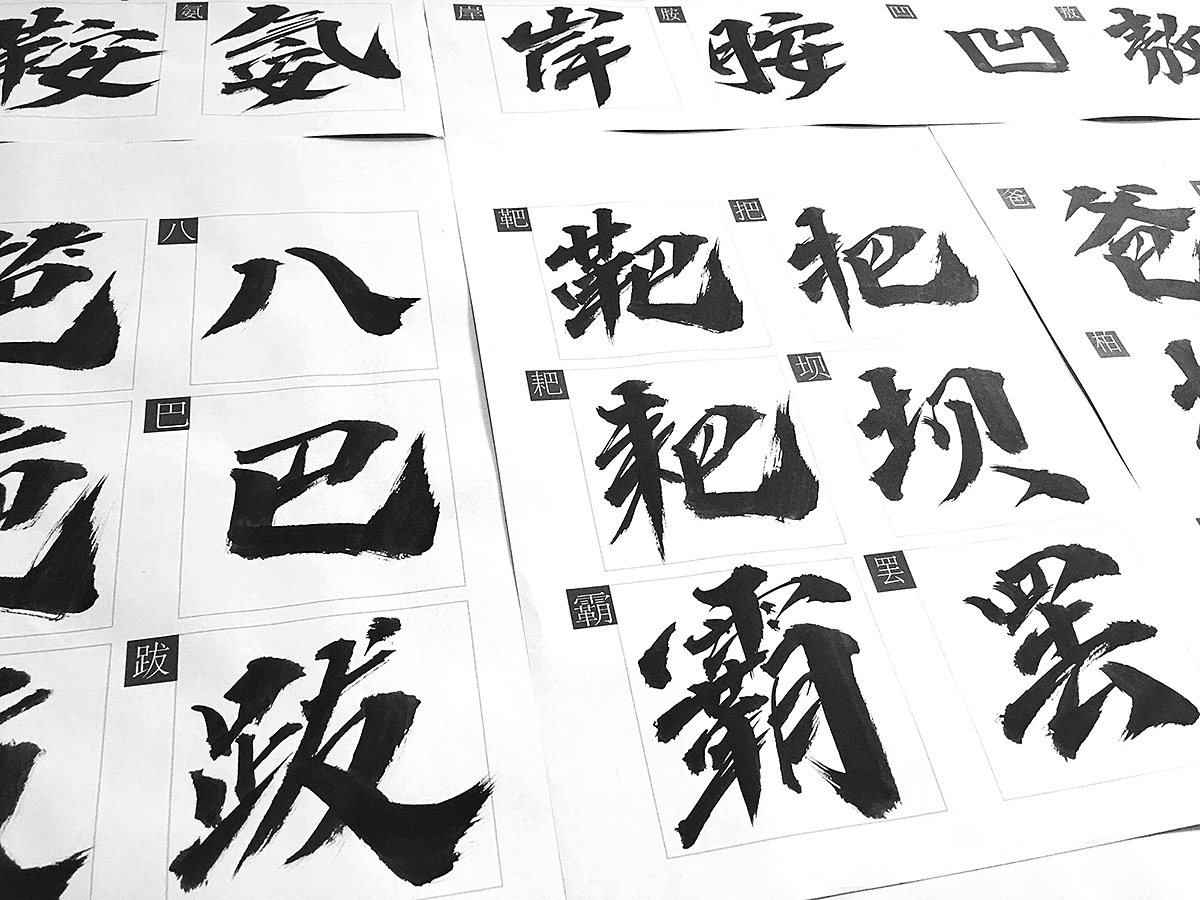 鞍 氨 氨 岸 岸 胺 胺 凹 凹 敖 敖
八 八 靶 靶 把 把 爸 爸
巴 巴 耙 耙 坝 坝 柏
跋 跋 霸 霸 罢 罢